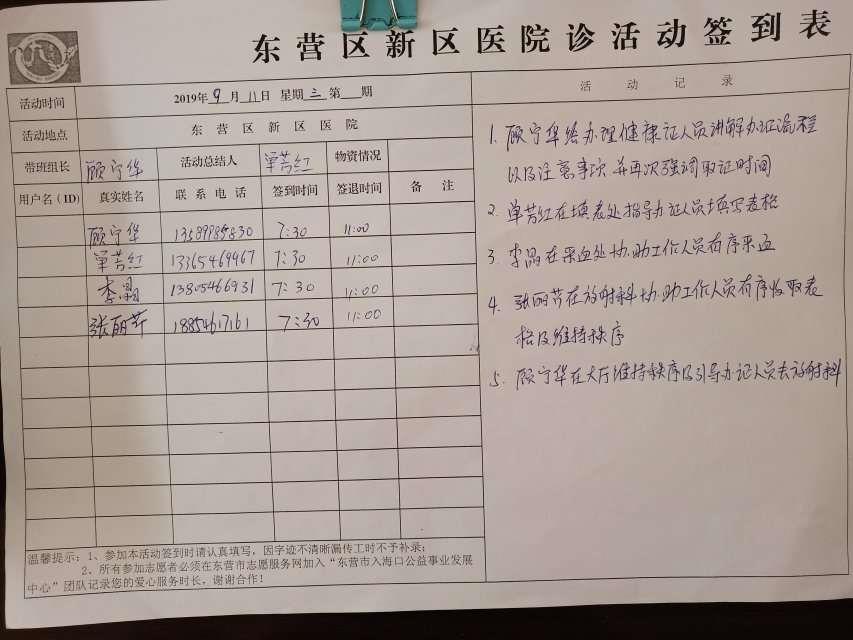 东营区新区医院诊活动签到表
活动时间 2019年9月11日 星期三 第 期 活动记录
活动地点 东营区新区医院
带班组长 顾宁华 活动总结人 单芳红 物资情况
用户名（ID） 真实姓名 联系电话 签到时间 签退时间 备注
顾宁华 13589985830 7:30 11:00
单芳红 13365469967 7:30 11:00
李晶 13805466931 7:30 11:00
张丽芹 18854617161 7:30 11:00
1. 顾宁华给办理健康证人员讲解办证流程
以及注意事项 并再次强调取证时间
2. 单芳红在填表处指导办证人员填写表格
3. 李晶在采血处协助工作人员有序采血
4. 张丽芹在放射科协助工作人员有序收取表
格及维持秩序
5. 顾宁华在大厅维持秩序及引导办证人员去放射科
温馨提示：1、参加本活动签到时请认真填写，因字迹不清晰漏传工时不予补录；
2、所有参加志愿者必须在东营市志愿服务网加入“东营市入海口公益事业发展
中心”团队记录您的爱心服务时长，谢谢合作！